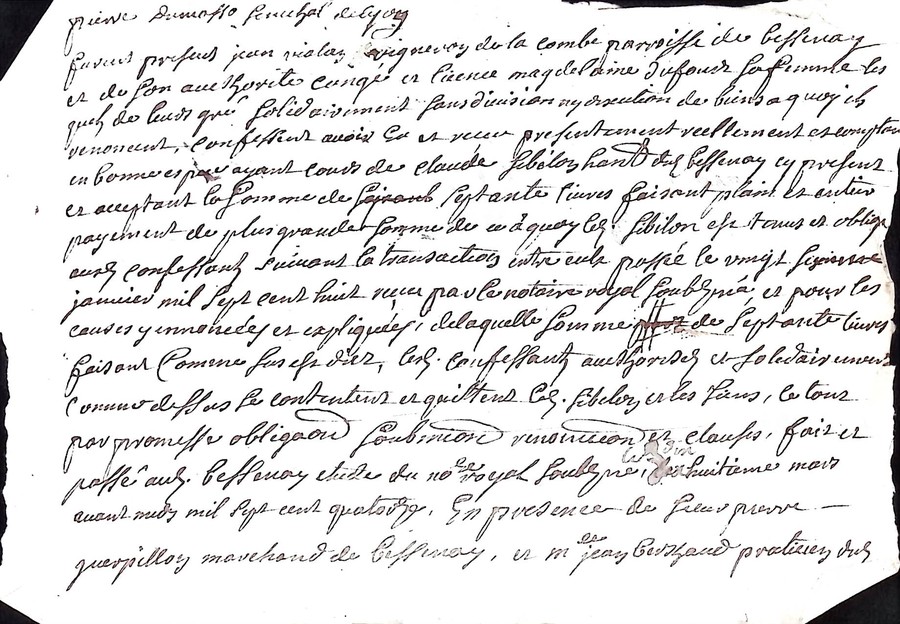 pierre Dumasso senechal de Lyon
furent present jean vialay vigneron de la combe parroisse de bessenay
et de son authorité congé et licence magdelaine dufour sa femme les
quels de leurs gré solidairement sans division ny discution de biens a quoy ils
renoncent, confessent avoir eu et receu presentement reellement et comptant
en bonne espece ayant cours de claude sibilon hand dud bessenay cy present
et acceptant la somme de septante livres faisant plain et entier
payement de plus grande somme de a quoy led. sibilon est tenus et obligé
aud confessant suivant la transaction entre eulx passé le vingt
janvier mil sept cent huit receu par le notaire royal soubzné, et pour les
causes y ennoncées et expliquées, de laquelle somme de septante livres
faisant comme sus est dit, led. confessants authorisée et solidairement
comme dessus se contentent et quittent led. sibilon et les siens, le tout
par promesse obligaon soubmicon renonciaon et clauses, fait et
passé aud. bessenay etude du nore royal soubzné, huitieme mars
avant midy mil sept cent quatorze, En presence de sieur pierre
guerpillon marchand de bessenay, et me jean berthaud praticien dud